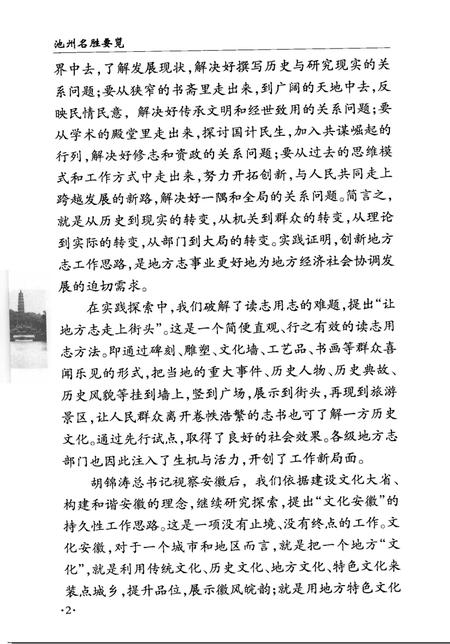 池州名胜要览
界中去,了解发展现状,解决好撰写历史与研究现实的关
系问题;要从狭窄的书斋里走出来,到广阔的天地中去,反
映民情民意，解决好传承文明和经世致用的关系问题;要
从学术的殿堂里走出来,探讨国计民生,加入共谋崛起的
行列,解决好修志和资政的关系问题;要从过去的思维模
式和工作方式中走出来,努力开拓创新,与人民共同走上
跨越发展的新路,解决好一隅和全局的关系问题。简言之,
就是从历史到现实的转变,从机关到群众的转变,从理论
到实际的转变,从部门到大局的转变。实践证明,创新地方
志工作思路,是地方志事业更好地为地方经济社会协调发
展的迫切需求。
在实践探索中,我们破解了读志用志的难题,提出“让
地方志走上街头”。这是一个简便直观、行之有效的读志用
志方法。即通过碑刻、雕塑、文化墙、工艺品、书画等群众喜
闻乐见的形式,把当地的重大事件、历史人物、历史典故、
历史风貌等挂到墙上,竖到广场,展示到街头,再现到旅游
景区,让人民群众离开卷帙浩繁的志书也可了解一方历史
文化。通过先行试点,取得了良好的社会效果。各级地方志
部门也因此注入了生机与活力,开创了工作新局面。
胡锦涛总书记视察安徽后，我们依据建设文化大省、
构建和谐安徽的理念,继续研究探索,提出“文化安徽”的
持久性工作思路。这是一项没有止境、没有终点的工作。文
化安徽,对于一个城市和地区而言,就是把一个地方“文
化”,就是利用传统文化、历史文化、地方文化、特色文化来
装点城乡,提升品位,展示徽风皖韵;就是用地方特色文化
·2·